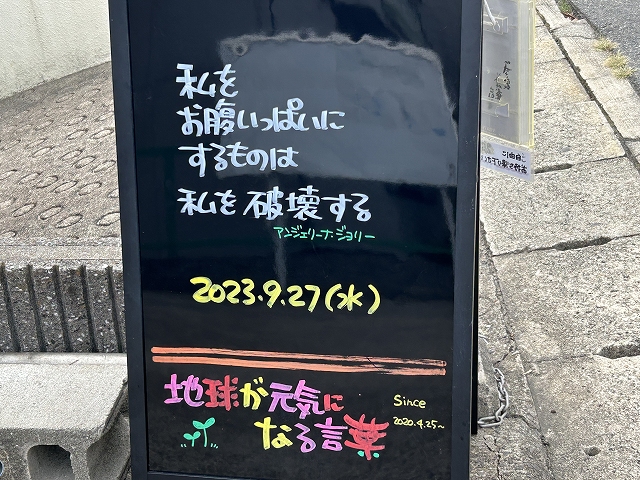 私を
お腹いっぱいに
するものは
私を破壊する
アンジェリーナ・ジョリー
2023.9.27(水)
地球が元気に
なる言葉
Since
2020.4.25~
ご自由に